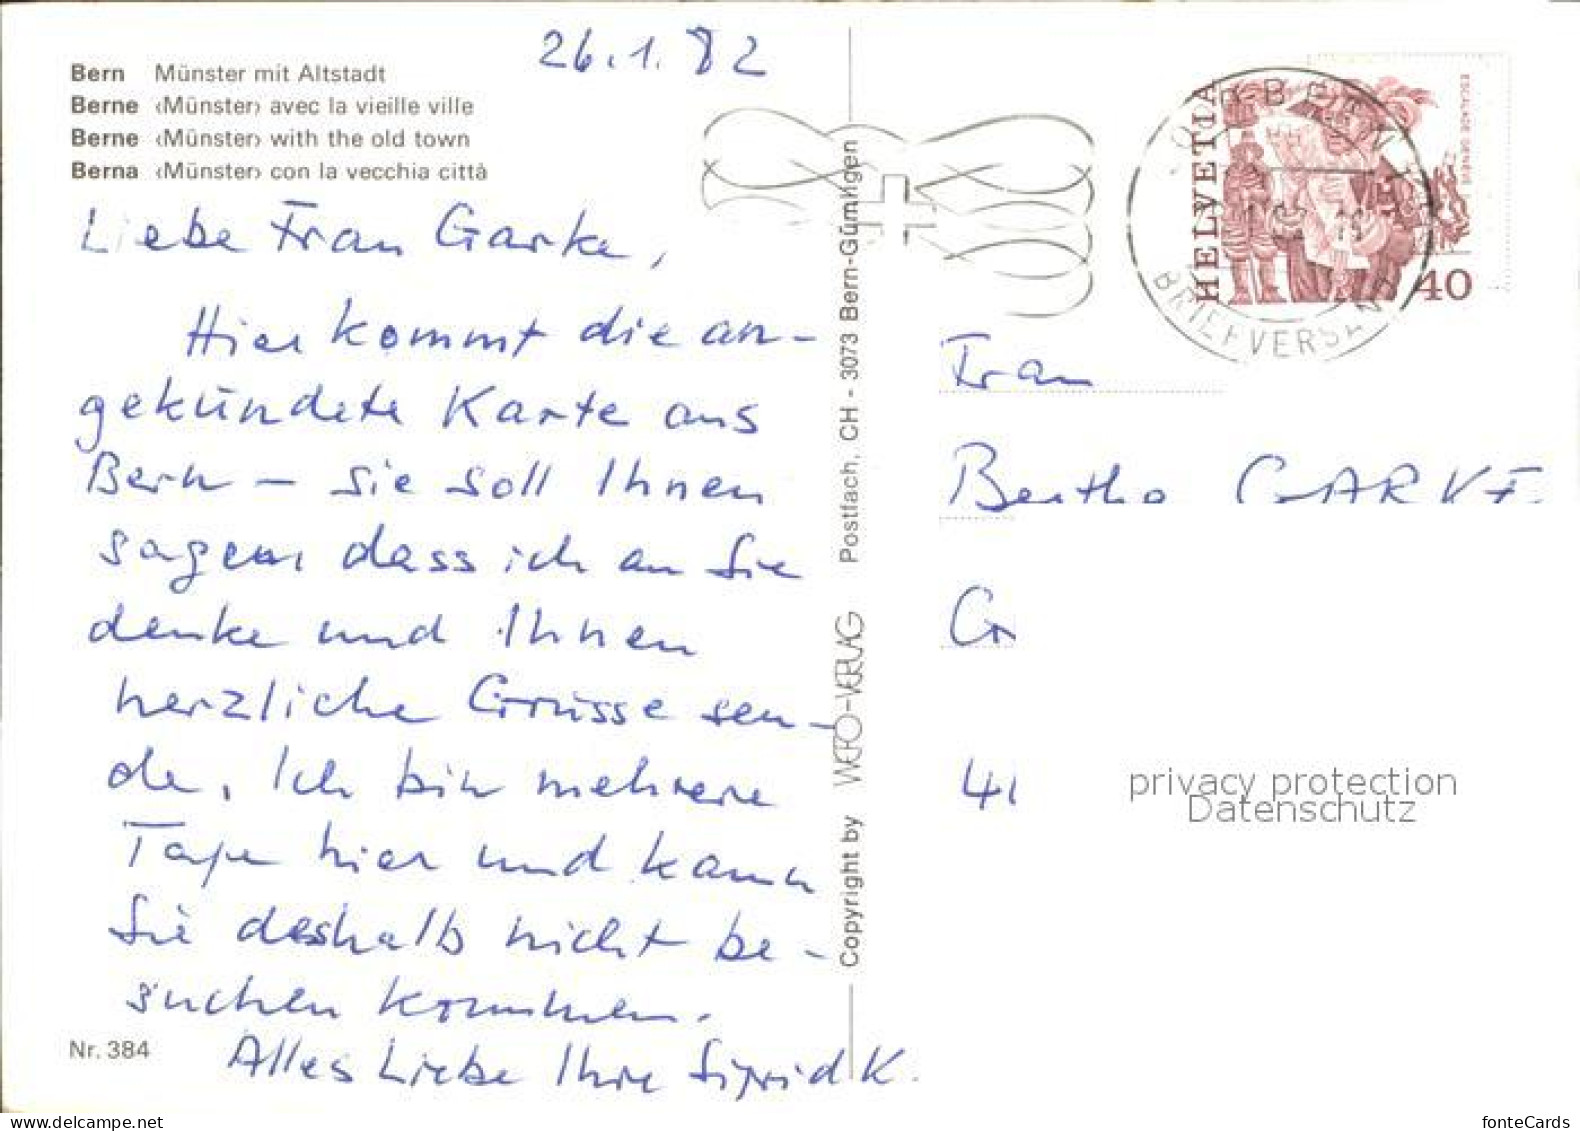 26.1.82
Bern Münster mit Altstadt
Berne ‹Münster› avec la vieille ville
Berne ‹Münster› with the old town
Berna ‹Münster› con la vecchia città
Liebe Frau Garke,
Hier kommt die an-
gekündete Karte aus
Bern – sie soll Ihnen
sagen dass ich an Sie
denke und Ihnen
herzliche Grüsse sen-
de. Ich bin mehrere
Tage hier und kann
Sie deshalb nicht be-
suchen kommen.
Alles Liebe Ihre Sigrid K.
Nr. 384
Copyright by WEFO-VERLAG Postfach, CH - 3073 Bern-Gümligen
HELVETIA
ESCALADE GENÈVE
40
BRIEFVERSAND
Frau
Bertha GARKE
Gr
41
privacy protection
Datenschutz
www.delcampe.net
fonteCards